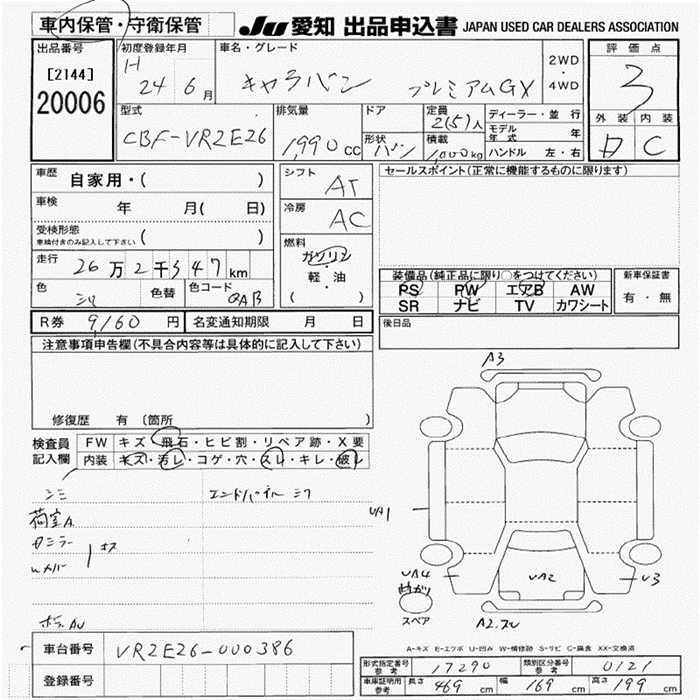 車内保管・守衛保管
JU 愛知 出品申込書 JAPAN USED CAR DEALERS ASSOCIATION
出品番号
[2144]
20006
初度登録年月
H 24 6 月
車名・グレード
キャラバン プレミアムGX
2WD
・
4WD
評価点
3
外装 内装
C
型式
CBF-VR2E26
排気量
1,990 cc
ドア
形状
バン
定員
2(5)人
積載
1,000kg
ディーラー・並行
モデル年式 年
ハンドル 左・右
車歴
自家用・( )
車検
年 月( 日)
受検形態
車検付きのみ記入して下さい ( )
走行
26万2千347km
色
シロ
色替
色コード
QAB
シフト
AT
冷房
AC
燃料
ガソリン
・
軽・油
( )
セールスポイント(正常に機能するものに限ります)
装備品(純正品に限り○をつけてください)
PS PW エアB AW
SR ナビ TV カワシート
新車保証書
有・無
後日品
R券 9160 円 名変通知期限 月 日
注意事項申告欄(不具合内容等は具体的に記入して下さい)
修復歴 有 〔箇所 〕
検査員
記入欄
FW キズ・飛石・ヒビ割・リペア跡・X要
内装 キズ・汚レ・コゲ・穴・スレ・キレ・破レ
シミ
エンドパネル
荷室A
A3
UA1
UA4
曲がり
UA2
U3
スペア
A2.
A-キズ E-エクボ U-凹み W-補修跡 S-サビ C-腐食 XX-交換済
車台番号
VR2E26-000386
登録番号
形式指定番号
参考
17290
類別区分番号
参考
0121
車庫証明用
参考
長さ 469 cm 幅 169 cm 高さ 199 cm